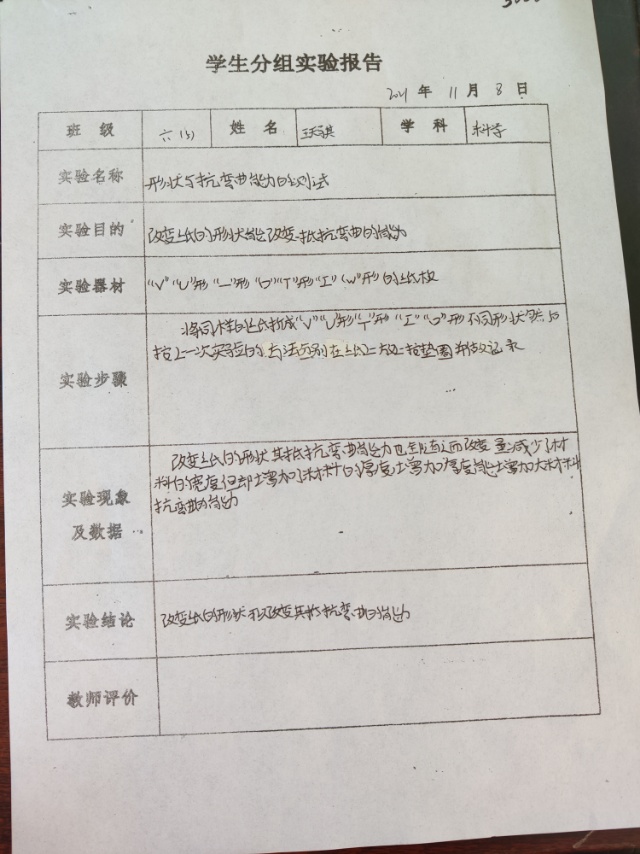 学生分组实验报告
2021 年 11 月 8 日
班 级 六(5) 姓 名 王琪 学 科 科学
实验名称 形状与抗弯曲能力的测试
实验目的 改变纸的形状能改变抵抗弯曲的能力
实验器材 "V" "U"形 "一"形 "口" "T"形 "工" "W"形的纸板
将同样的纸折成"V" "U"形 "T"形 "工" "口"形不同形状然后
实验步骤 按上一次实验的方法分别在纸上放上垫圈并做记录
改变纸的形状其抵抗弯曲能力也随之而改变虽减少了材
料的宽度但却增加了材料的厚度增加厚度能增加大材料
实验现象及数据 抗弯曲的能力
实验结论 改变纸的形状可以改变其抵抗弯曲的能力
教师评价